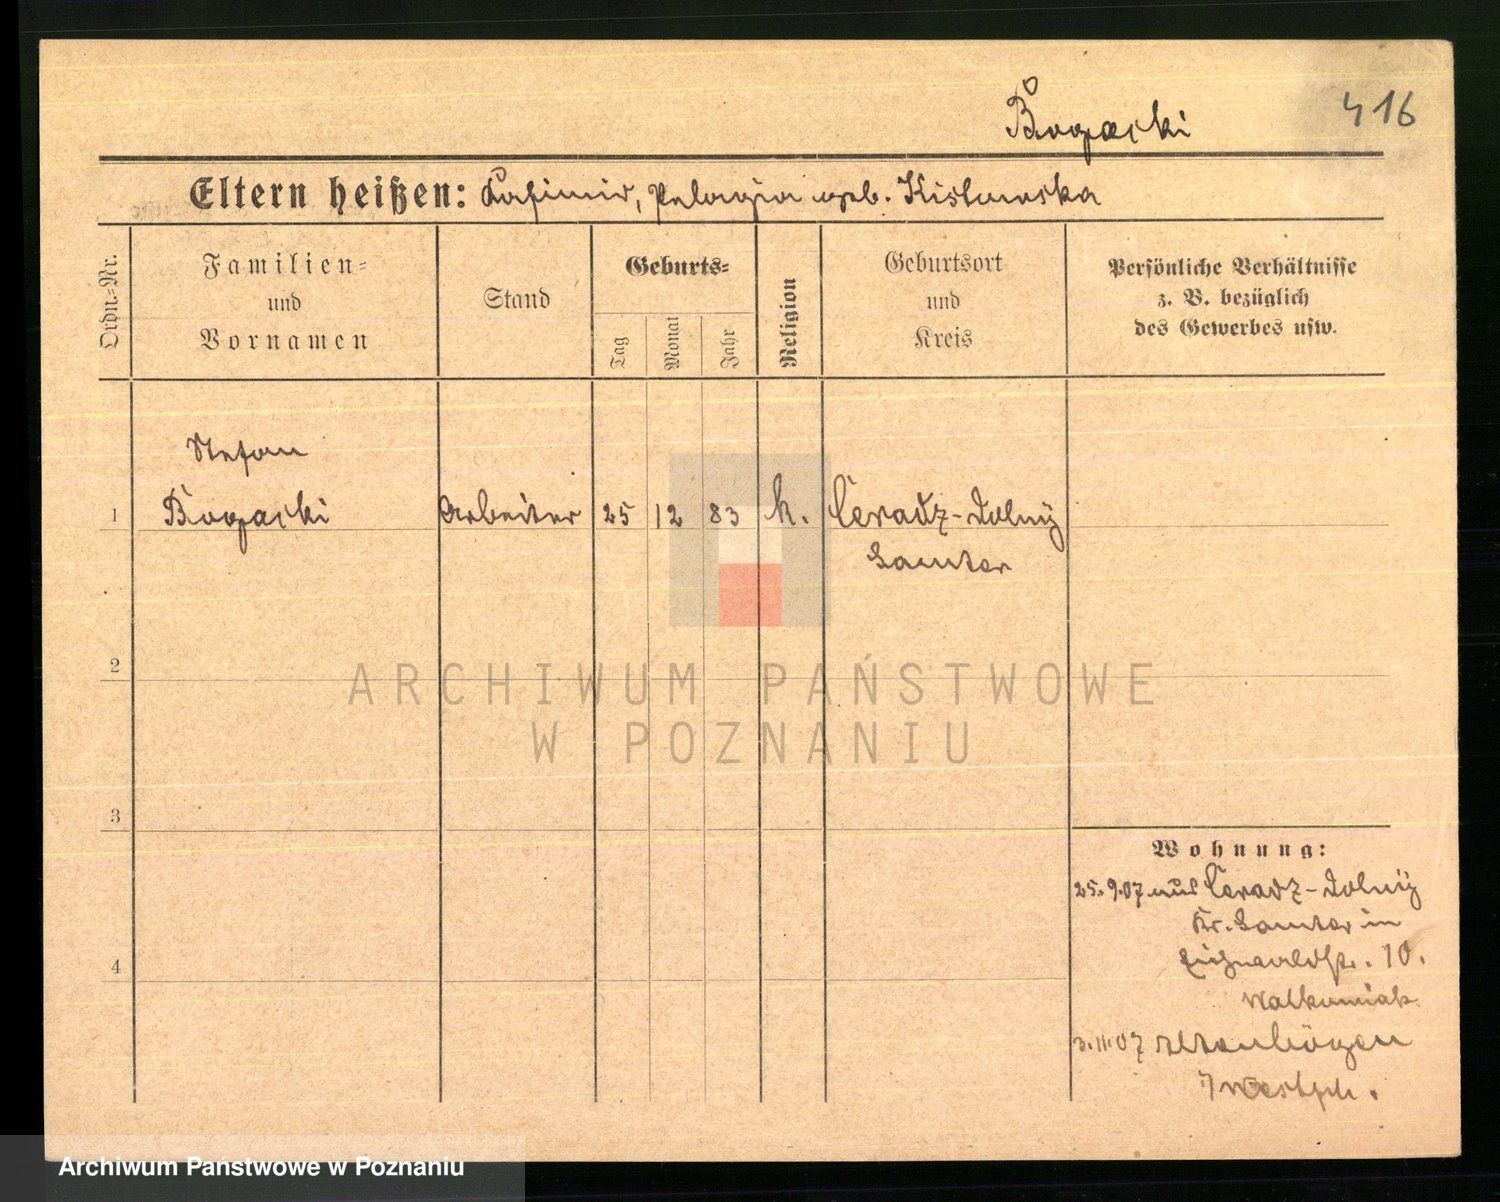 Bogacki
416
Eltern heißen: Kasimir, Pelagia geb. Kistowska
Ordn.-Nr.
Familien-
und
Vornamen
Stand
Geburts-
Tag
Monat
Jahr
Religion
Geburtsort
und
Kreis
Persönliche Verhältnisse
z. B. bezüglich
des Gewerbes usw.
Stefan
1 Bogacki Arbeiter 25 12 83 k. Ceradz-Dolny
Samter
2
ARCHIWUM PAŃSTWOWE
W POZNANIU
3
Wohnung:
25.9.07 aus Ceradz-Dolny
Kr. Samter in
10.
Walkowiak
4
3.11.07 Altenbögge
/Westph.
Archiwum Państwowe w Poznaniu